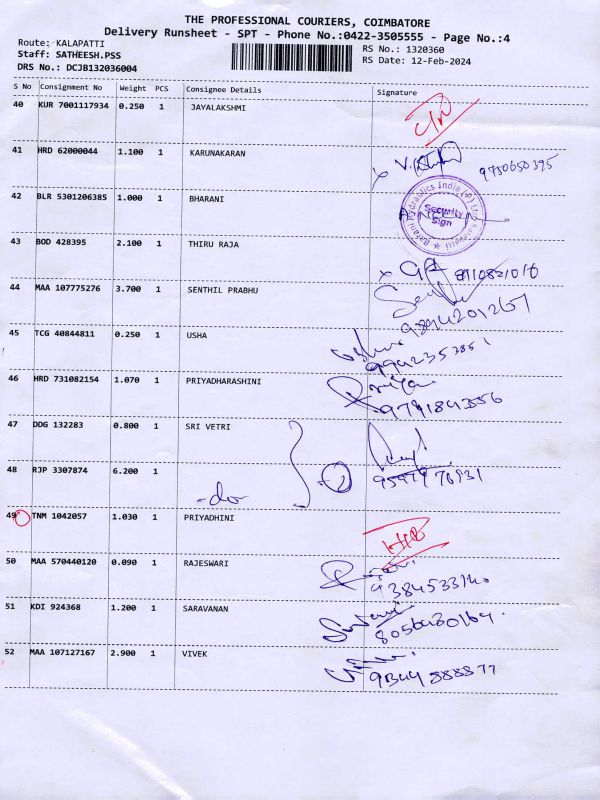 THE PROFESSIONAL COURIERS, COIMBATORE
Delivery Runsheet - SPT - Phone No.:0422-3505555 - Page No.:4
Route: KALAPATTI
RS No.: 1320360
Staff: SATHEESH.PSS
RS Date: 12-Feb-2024
DRS No.: DCJB132036004
S No Consignment No Weight PCS Consignee Details Signature
40 KUR 7001117934 0.250 1 JAYALAKSHMI
41 HRD 62000044 1.100 1 KARUNAKARAN 9750650395
42 BLR 5301206385 1.000 1 BHARANI
Security Sign
43 BOD 428395 2.100 1 THIRU RAJA
44 MAA 107775276 3.700 1 SENTHIL PRABHU 9894201267
45 TCG 40844811 0.250 1 USHA 9942353851
46 HRD 731082154 1.070 1 PRIYADHARASHINI Priya 9791843556
47 DDG 132283 0.800 1 SRI VETRI
48 RJP 3307874 6.200 1 -do- 2
49 TNM 1042057 1.030 1 PRIYADHINI
50 MAA 570440120 0.090 1 RAJESWARI 9384533140
51 KDI 924368 1.200 1 SARAVANAN
52 MAA 107127167 2.900 1 VIVEK 9344888877